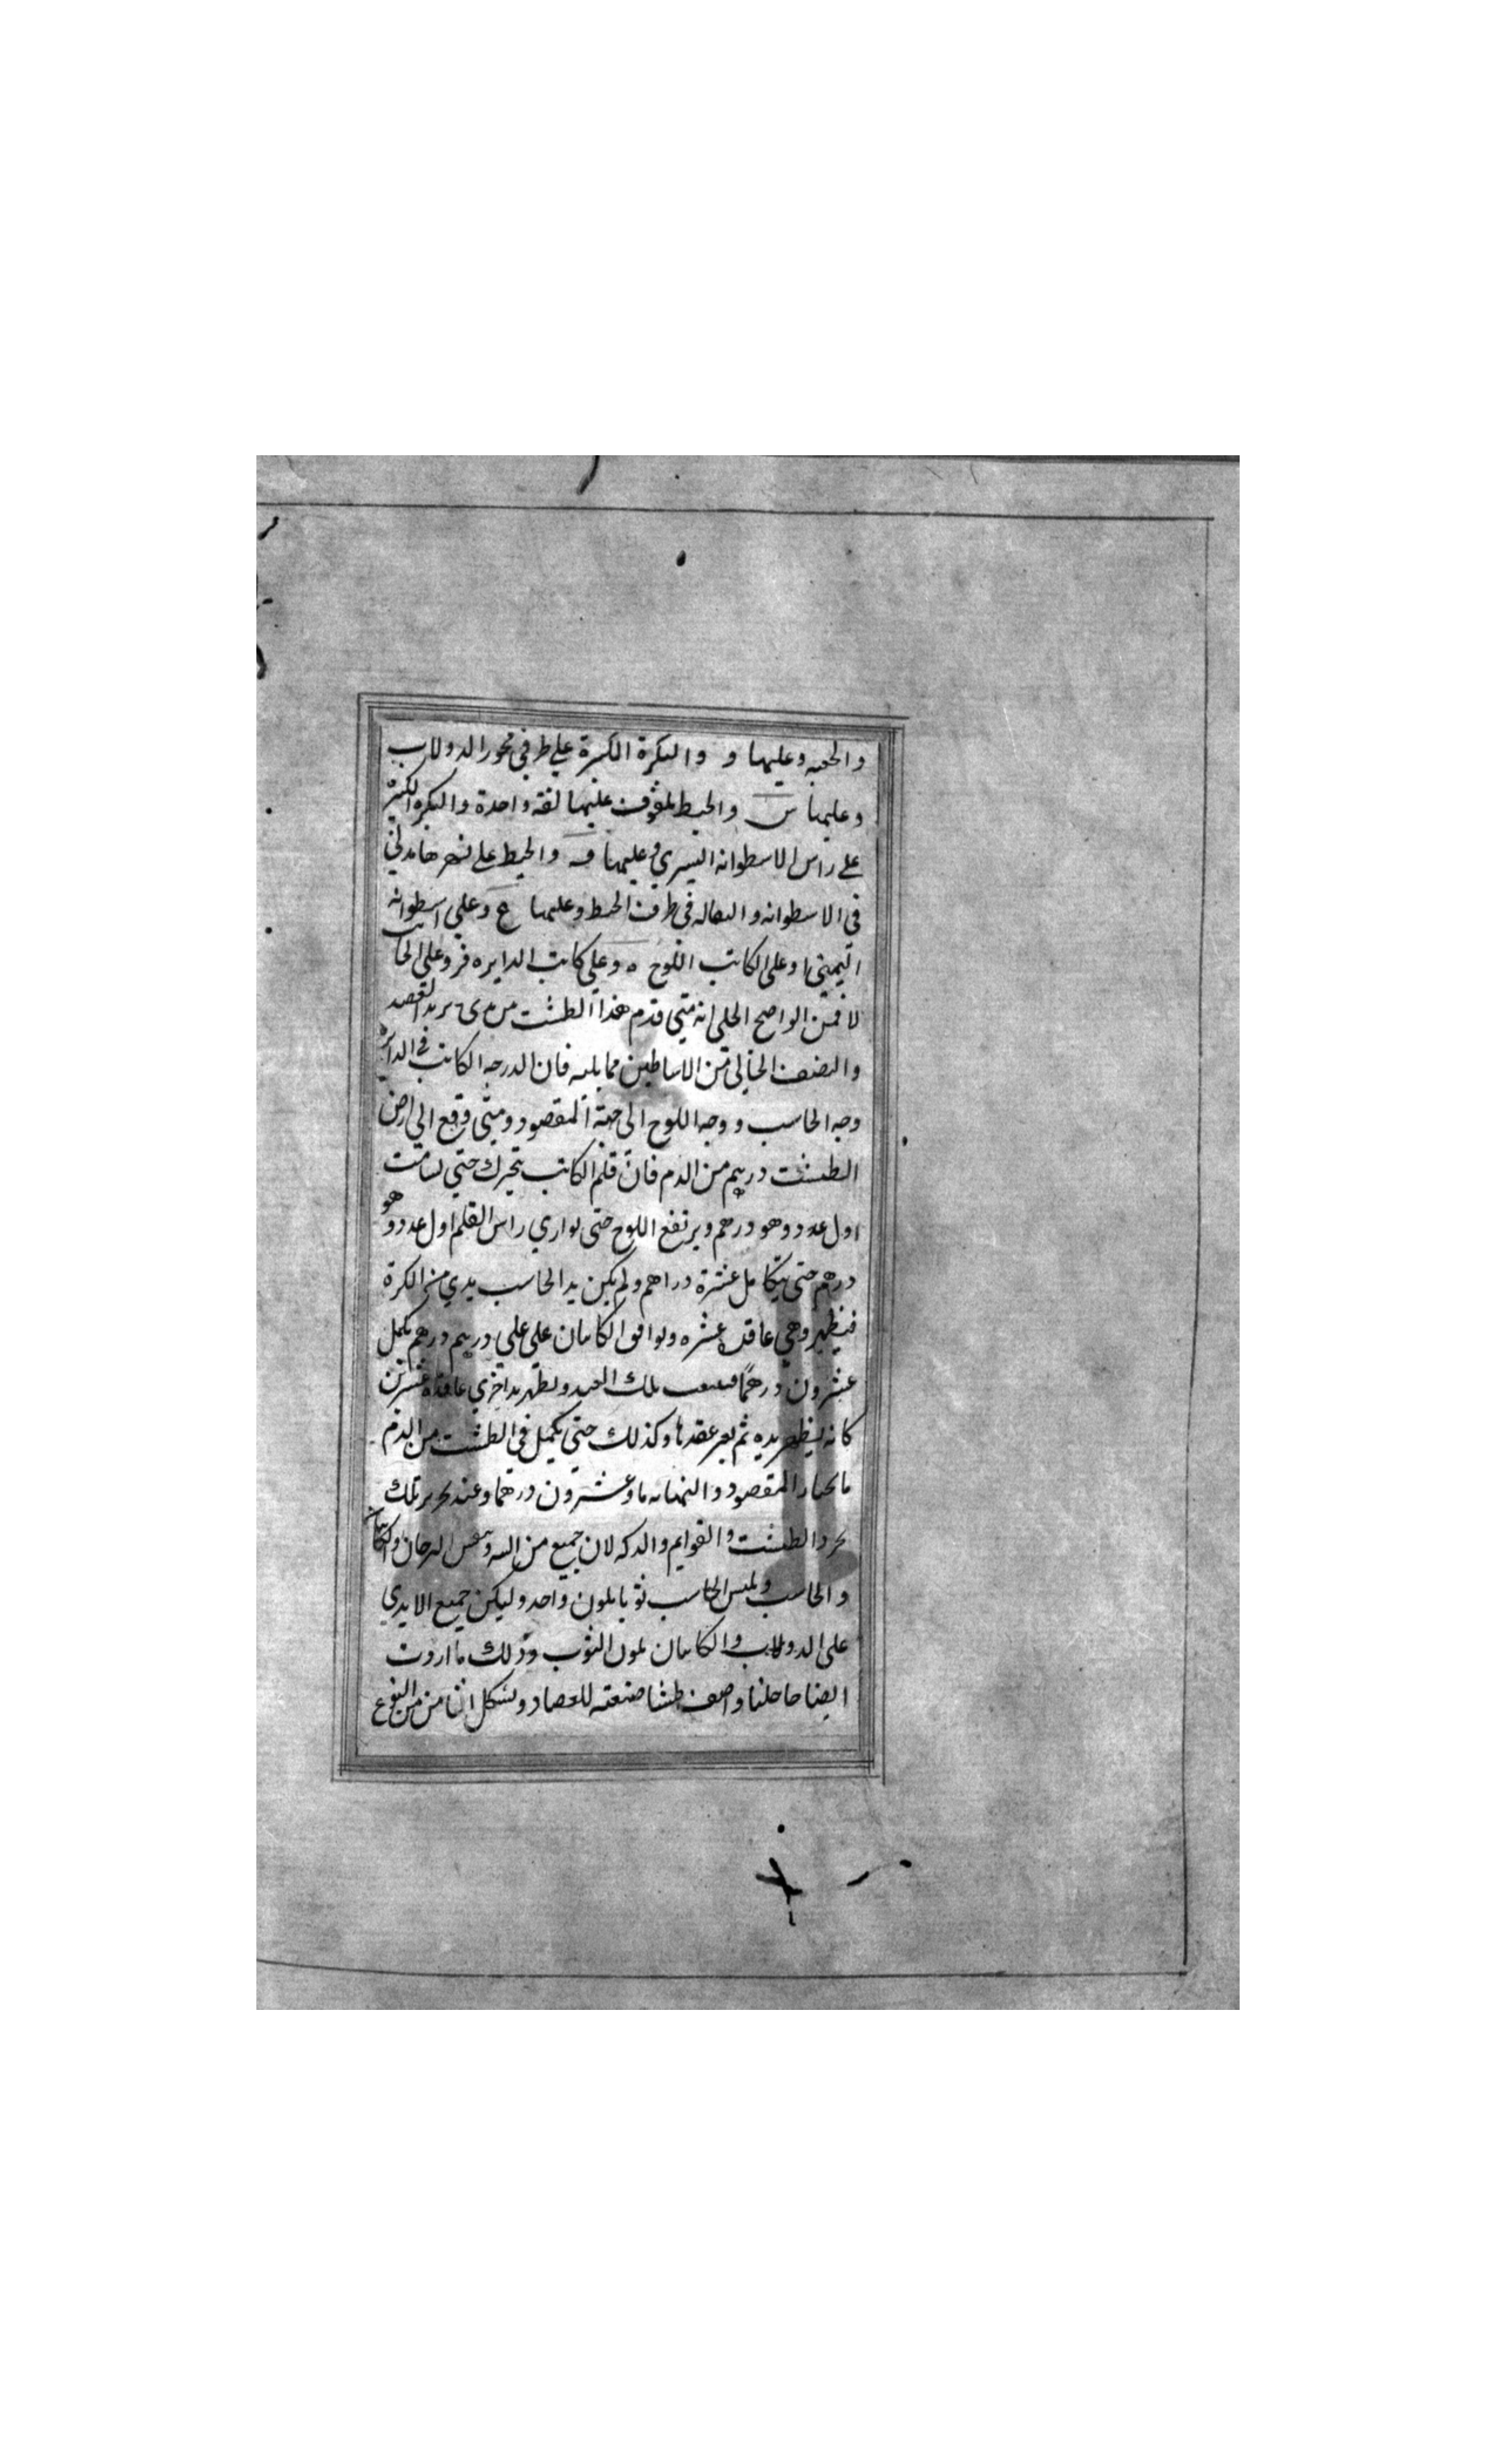 والجعبه وعليها و والبكرة الكبيرة علي طرفي محور الدولاب
وعليها س والخيط ملفوف عليها لفة واحدة والبكره الكبيرة
علي راس الاسطوانه اليسري وعليها ف والخيط علي نهرها مدلي
في الاسطوانه والثقاله في طرف الخيط وعليها ع وعلي اسطوانه
اليمني ا وعلي الكاتب اللوح ه وعلي كاتب الدايره فر وعلي الحاسب
لا فمن الواضح الجلي انه متي قدم هذا الطشت من يدي يريد الفصد
والنصف الخالي من الاساطين مما يليه فان الدرجه الكاتب في الدايرة
وجه الحاسب ووجه اللوح الي جهة المقصود ومتي وقع الي ارض
الطشت درهم من الدم فان قلم الكاتب يتحرك حتي يسامت
اول عدد وهو درهم ويرتفع اللوح حتي يوازي راس القلم اول عدد وهو
درهم حتي يتكامل عشرة دراهم ولم يكن يد الحاسب يدي من الكرة
فيظهر وهي عاقده عشره ويوافق الكاتبان علي علي درهم درهم يكمل
عشرون درهما تلك اليد وتظهر يد اخري عاقدة عشرين
كانه يظهر يده ثم يغير عقدها وكذلك حتي يكمل في الطشت من الدم
ما يختار المقصود والنهايه مايه وعشرون درهما وعند تحرير تلك
الطشت والقوايم والدكه لان جميع من الدرجان والكاتبان
والحاسب ويلبس الحاسب ثوبا بلون واحد وليكن جميع الايدي
علي الدولاب والكاتبان بلون الثوب وذلك ما اردت
ايضاحه جليا واصف طشتا صنعته للفصاد وبشكل الثامن من النوع